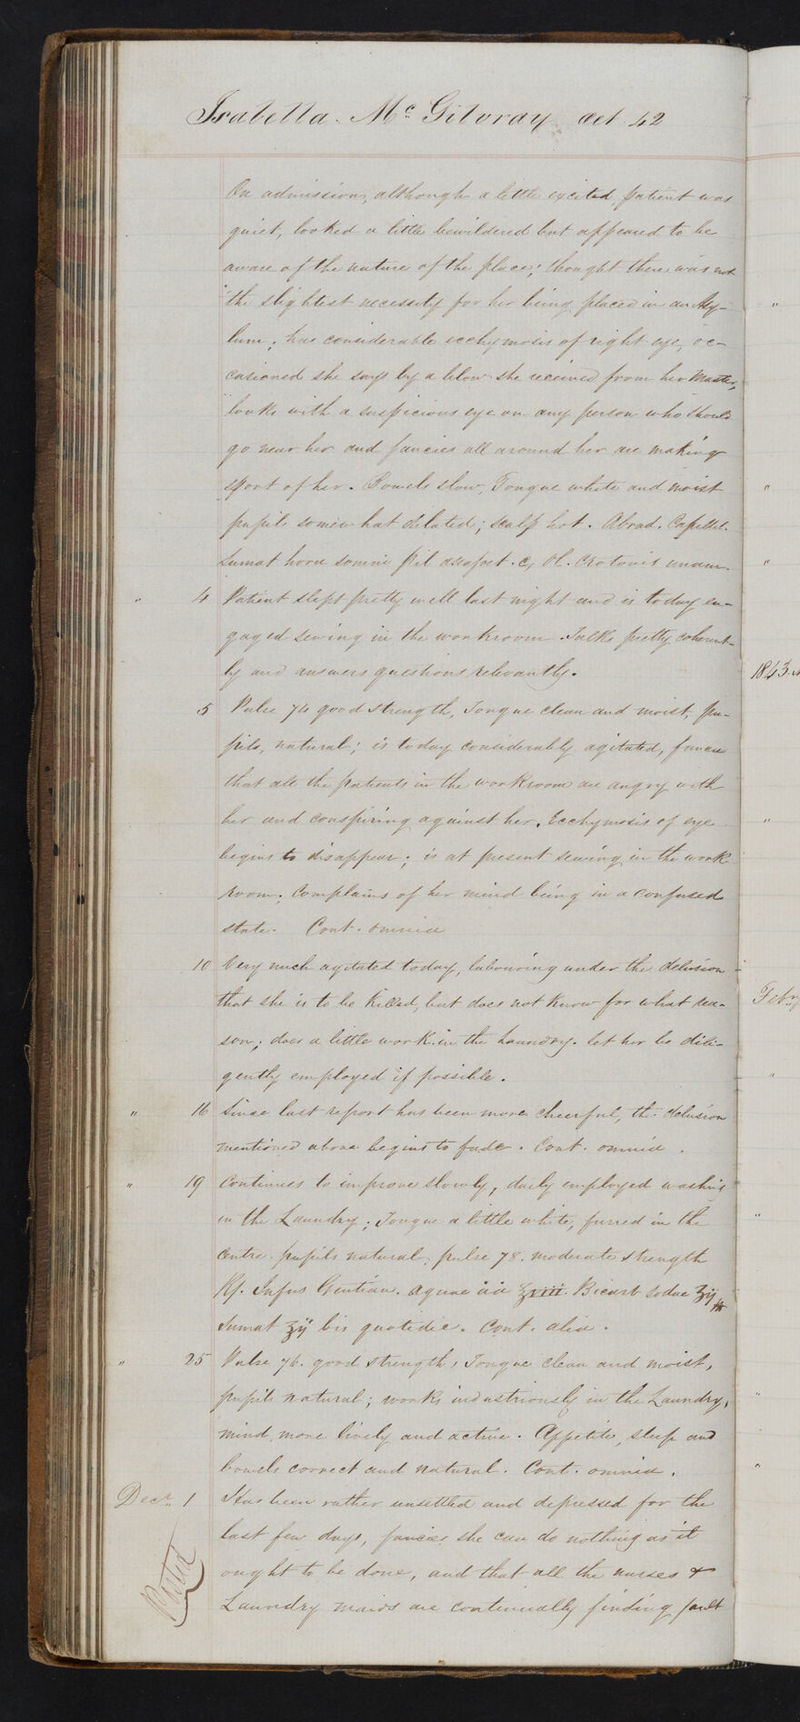 Isabella Mc Gilvray aet 42
On admission, although a little excited, patient was
quiet, looked a little bewildered but appeared to be
aware of the nature of the place; thought there was not
the slightest necessity for her being placed in an Asy-
lum; has considerable ecchymosis of right eye, oc-
casioned she says by a blow she received from her Master,
looks with a suspicious eye on any person who should
go near her and fancies all around her are making
sport of her. Bowels slow, Tongue white and moist
pupils somewhat dilated; scalp hot. Abrad. Capillit.
Sumat hora somni pil assafoet. c, Ol. Crotonis unam.
" 4 Patient slept pretty well last night and is today en-
gaged sewing in the workroom. Talks pretty coherent-
ly and answers questions relevantly.
5 Pulse 74 good strength, Tongue clean and moist, pu-
pils, natural; is today considerably agitated, fancies
that all the patients in the workroom are angry with
her and conspiring against her. Ecchymosis of eye
begins to disappear; is at present sewing in the work
room; Complains of her mind being in a confused
state. Cont. omnia
10 Very much agitated today, labouring under the delusion
that she is to be killed, but does not know for what rea-
son; does a little work in the Laundry. let her be dili-
gently employed if possible.
" 16 Since last report has been more cheerful, the delusion
mentioned above begins to fade. Cont. omnia.
" 19 Continues to improve slowly, daily employed washing
in the Laundry; Tongue a little white, furred in the
centre. pupils natural; pulse 78. moderate strength
Rf. Infus Gentian. aquae āā ℥viii. Bicarb sodae ʒij
Sumat ℥ij bis quotidie. Cont. alia.
" 25 Pulse 76. good strength, Tongue clean and moist,
pupils natural; works industriously in the Laundry,
mind more lively and active. Appetite, sleep and
bowels correct and natural. Cont. omnia.
Decr 1 Has been rather unsettled and depressed for the
last few days, fancies she can do nothing as it
ought to be done, and that all the nurses &
Laundry maids are continually finding fault
1843.
Feby